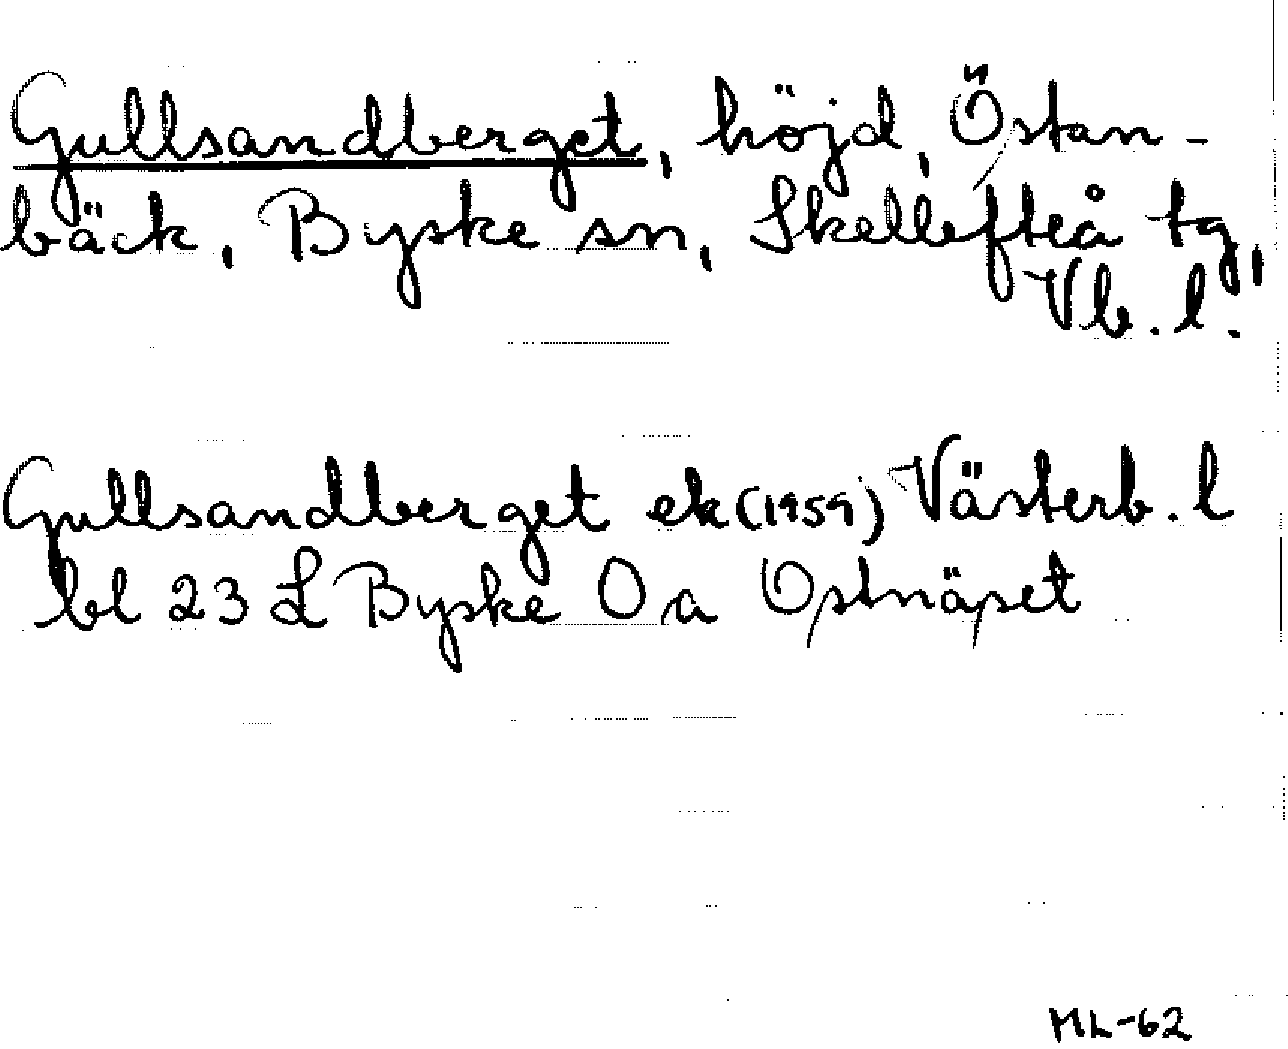 Gullsandberget, höjd, Östan-
bäck, Byske sn, Skellefteå tg,
Vb. l.
Gullsandberget ek (1959) Västerb. l
bl 23 L Byske O a Ostnäset
ML-62